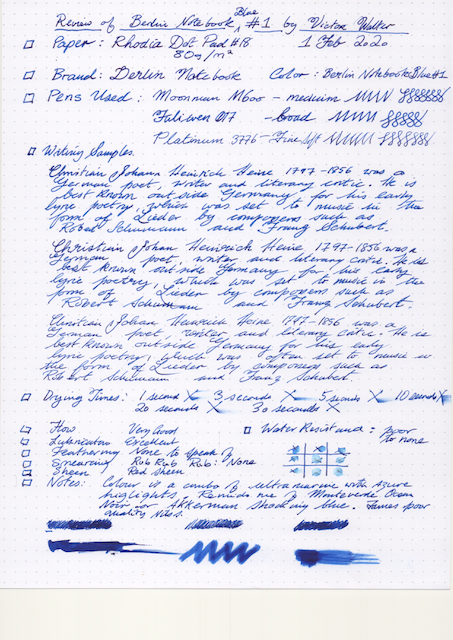 Review of Berlin Notebook Blue #1 by Victor Walter
Paper: Rhodia Dot Pad #18 1 Feb 2020
80g/m²
Brand: Berlin Notebook Color: Berlin Notebook Blue #1
Pens Used: Moonman M600 - medium
017 - broad
Platinum 3776 - Fine Soft
Writing Samples.
Christian Johann Heinrich Heine 1797-1856 was a
German poet, writer and literary critic. He is
best known outside Germany for his early
lyric poetry, which was set to music in the
form of Lieder by composers such as
Robert Schumann and Franz Schubert.
Christian Johan Heinrich Heine 1797-1856 was a
German poet, writer and literary critic. He is
best known outside Germany for his early
lyric poetry, which was set to music in the
form of Lieder by composers such as
Robert Schumann and Franz Schubert.
Christian Johan Heinrich Heine 1797-1856 was a
German poet writer and literary critic. He is
best known outside Germany for his early
lyric poetry, which was often set to music in
the form of Lieder by composers such as
Robert Schumann and Franz Schubert.
Drying Times: 1 second X 3 seconds X 5 seconds X 10 seconds X
20 seconds X 30 seconds X
Flow Very Good Water Resistance: poor
Lubrication Excellent to none
Feathering None to speak of
Smearing Rub Rub Rub: None
Sheen Red sheen
Notes: Colour is a combo of ultramarine with azure
highlights. Reminds me of Monteverde Ocean
Noir or Akkerman Shocking blue. James poor
quality